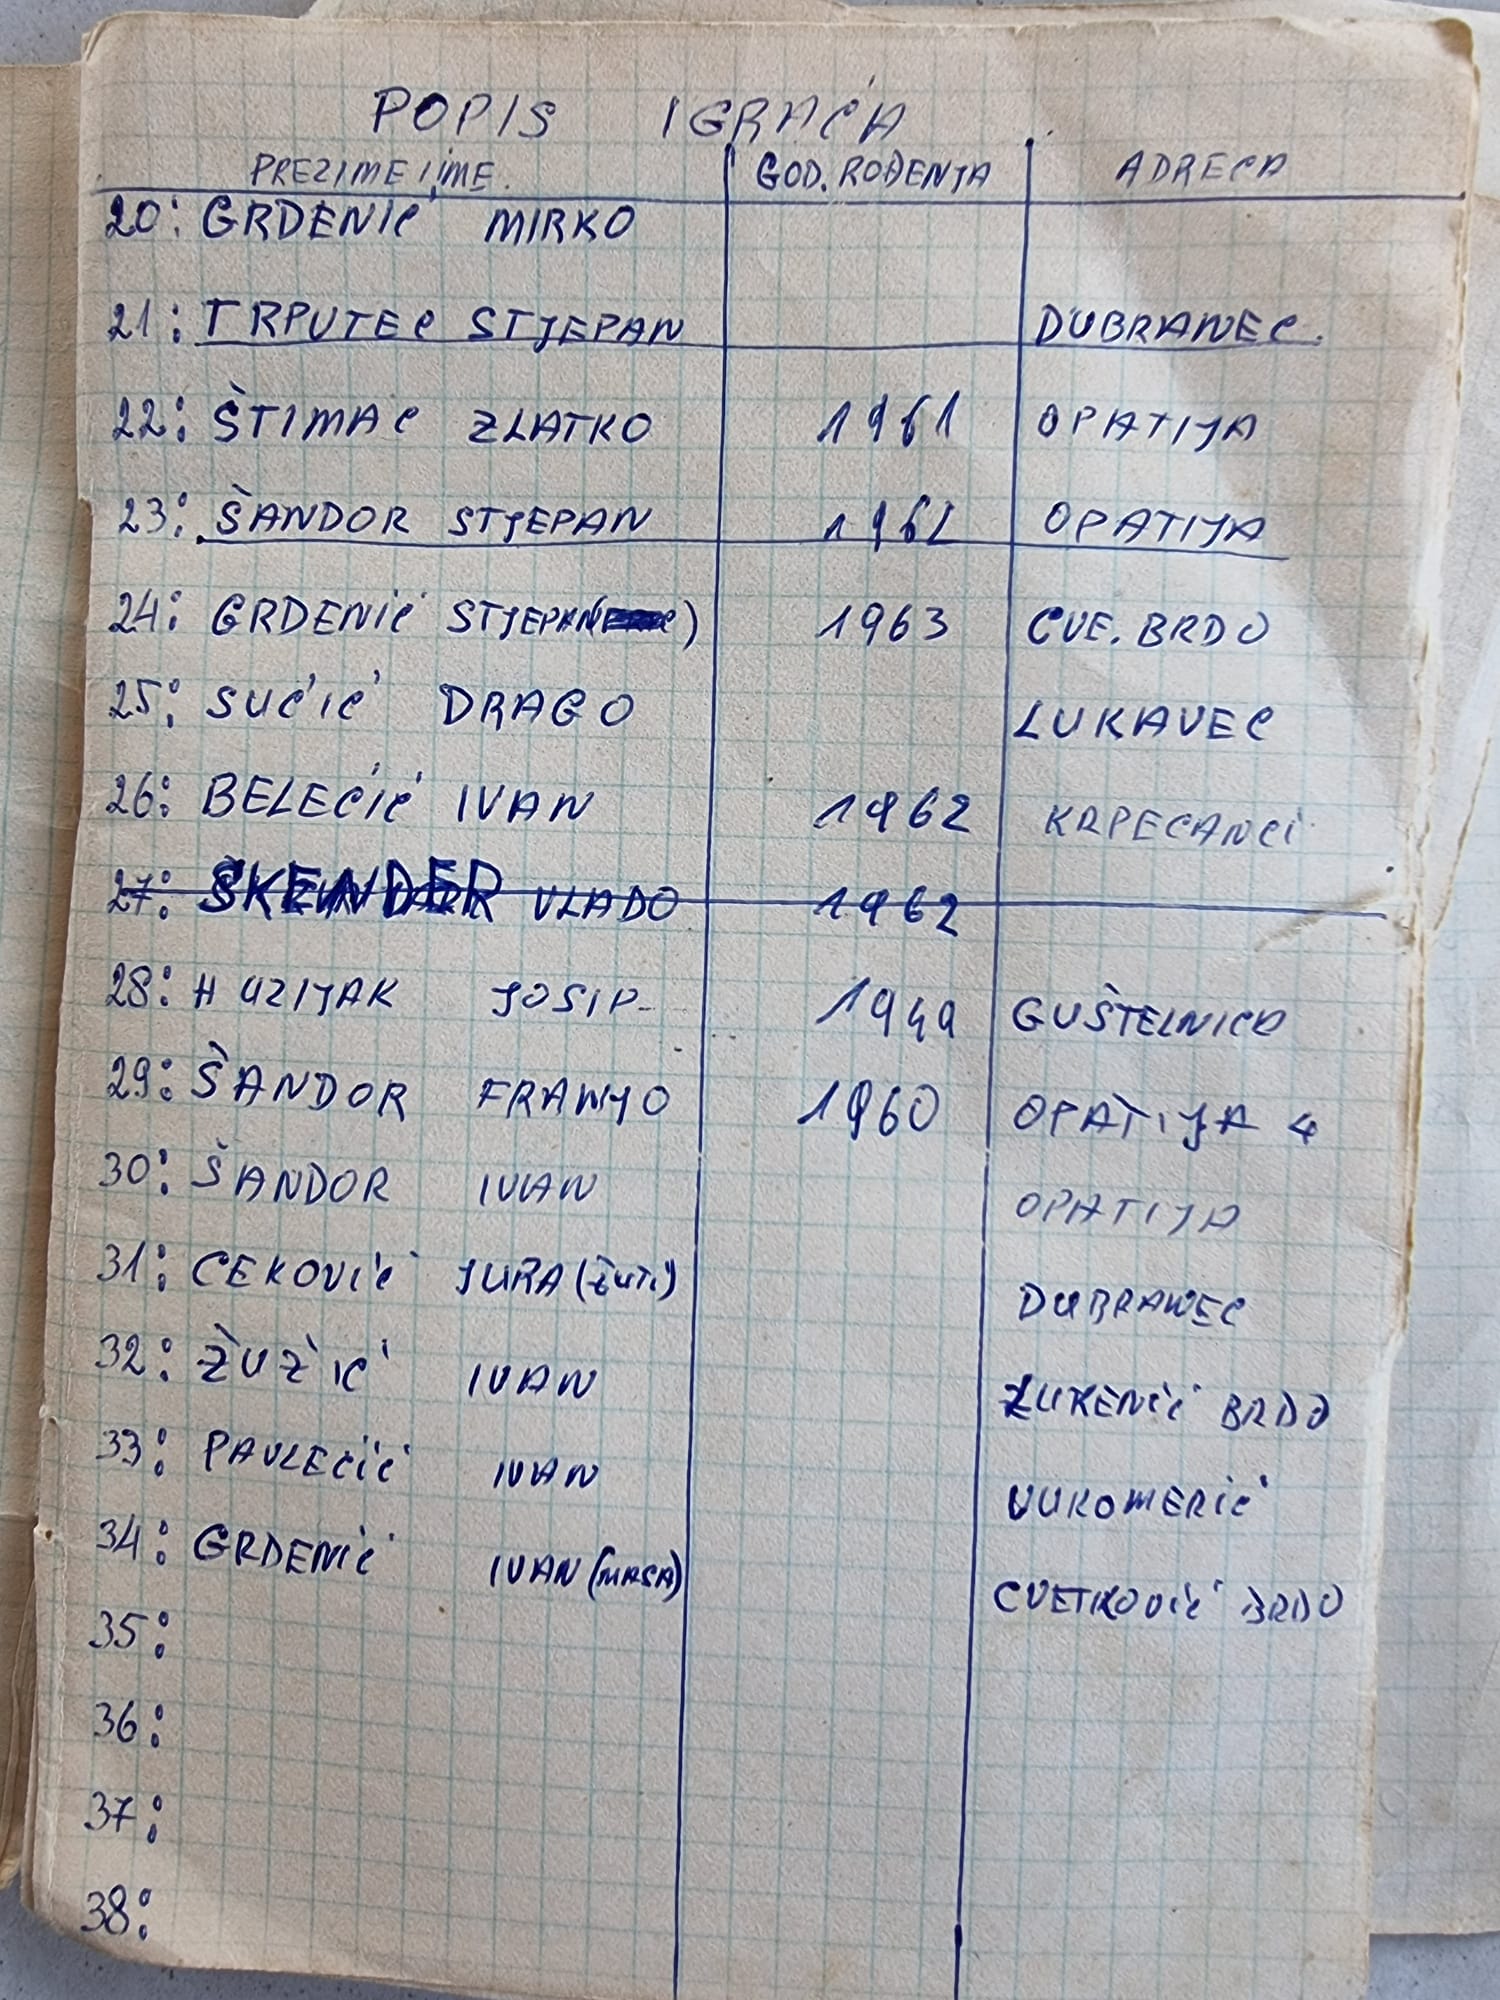 POPIS IGRAĆA
PREZIME I IME. GOD. ROĐENJA ADRECA
20: GRDENIĆ MIRKO
21: TRPUTEC STJEPAN DUBRANEC.
22: ŠTIMAC ZLATKO 1961 OPATIJA
23: ŠANDOR STJEPAN 1962 OPATIJA
24: GRDENIĆ STJEPAN( ) 1963 CVE. BRDO
25: SUĆIĆ DRAGO LUKAVEC
26: BELEĆIĆ IVAN 1962 KRPECANCI
27: ŠKENDER VLADO 1962
28: HUZIJAK JOSIP 1949 GUŠTELNICA
29: ŠANDOR FRANJO 1960 OPATIJA 4
30: ŠANDOR IVAN OPATIJA
31: CEKOVIĆ JURA (ŽUTI) DUBRANEC
32: ŽUŽIĆ IVAN ŽUKENIĆ BRDO
33: PAVLEĆIĆ IVAN VUKOMERIĆ
34: GRDENIĆ IVAN (MASA) CVETKOVIĆ BRDO
35:
36:
37:
38: